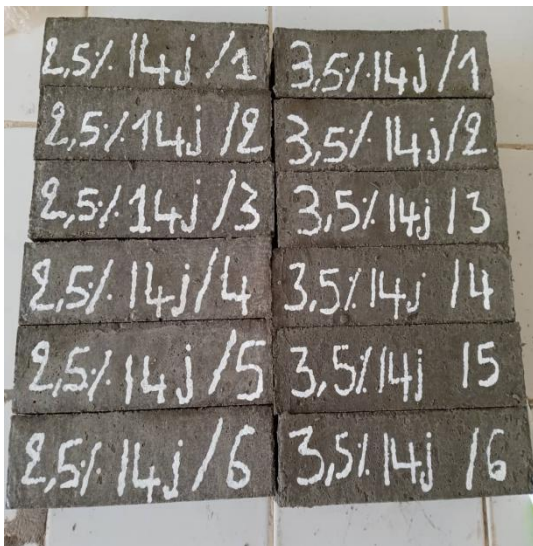 2,5% 14j /1
2,5% 14j /2
2,5% 14j /3
2,5% 14j /4
2,5% 14j /5
2,5% 14j /6
3,5% 14j /1
3,5% 14j /2
3,5% 14j /3
3,5% 14j /4
3,5% 14j /5
3,5% 14j /6